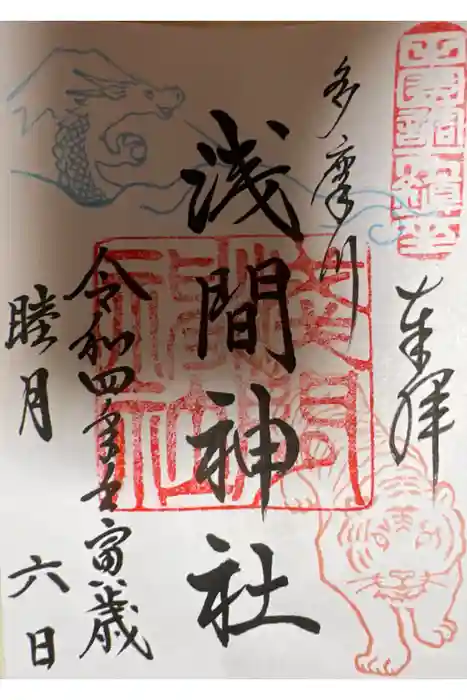 奉拝
多摩川
浅間神社
令和四年壬寅歳
睦月
六日